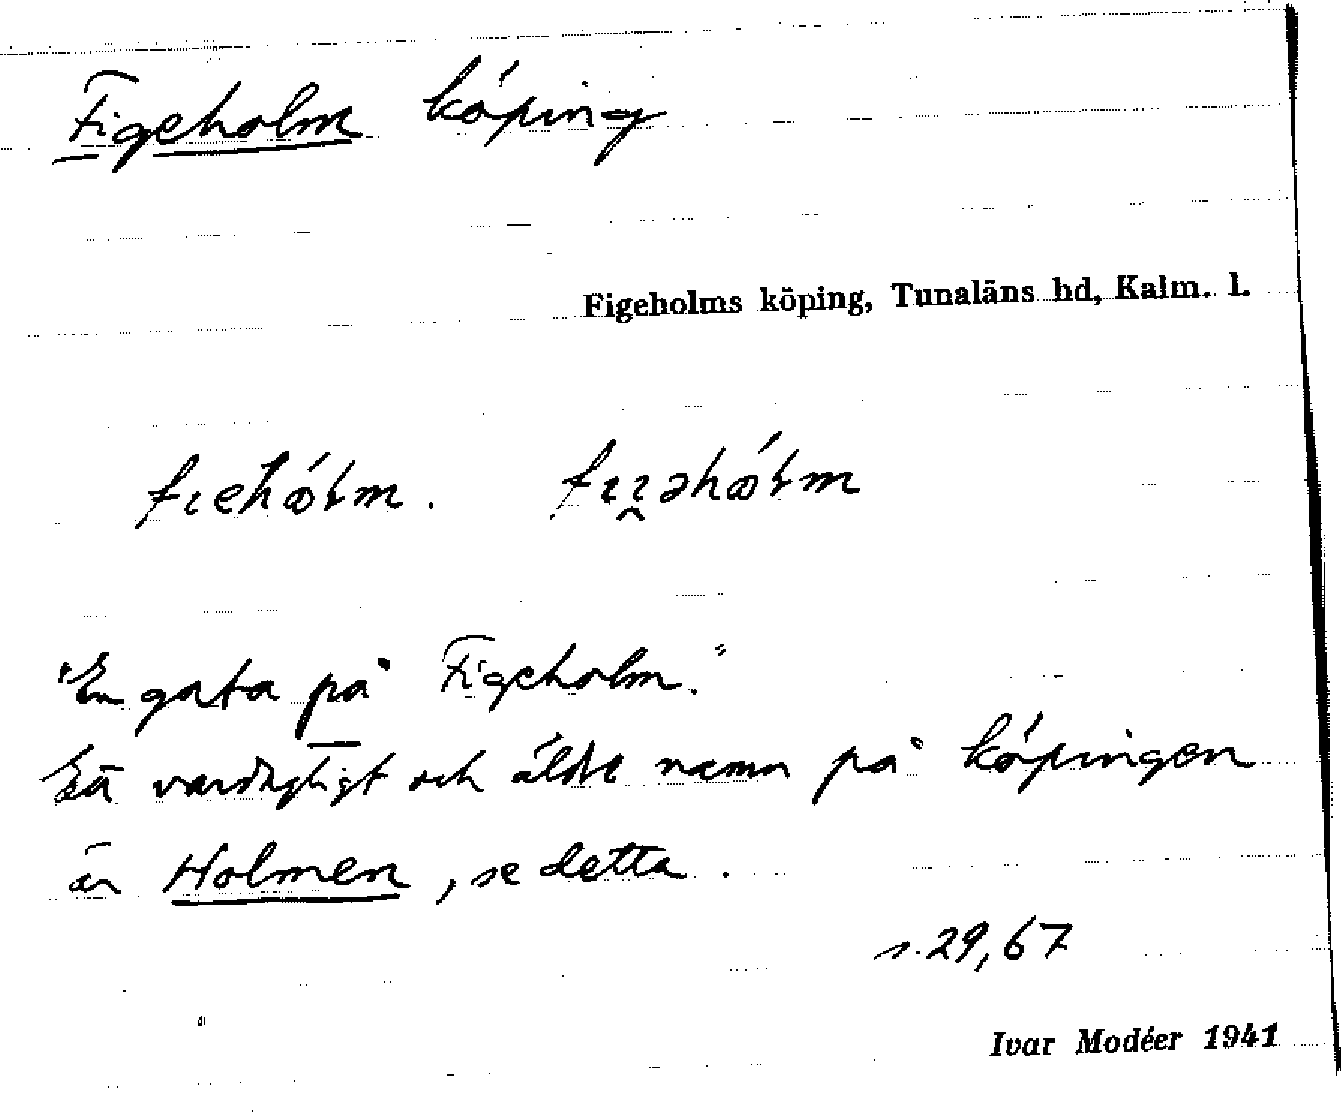 Figeholm köping
Figeholms köping, Tunaläns hd, Kalm. l.
"En gata på Figeholm."
Ett vardagligt och äldre namn på köpingen
är Holmen, se detta.
s. 29, 67
Ivar Modéer 1941